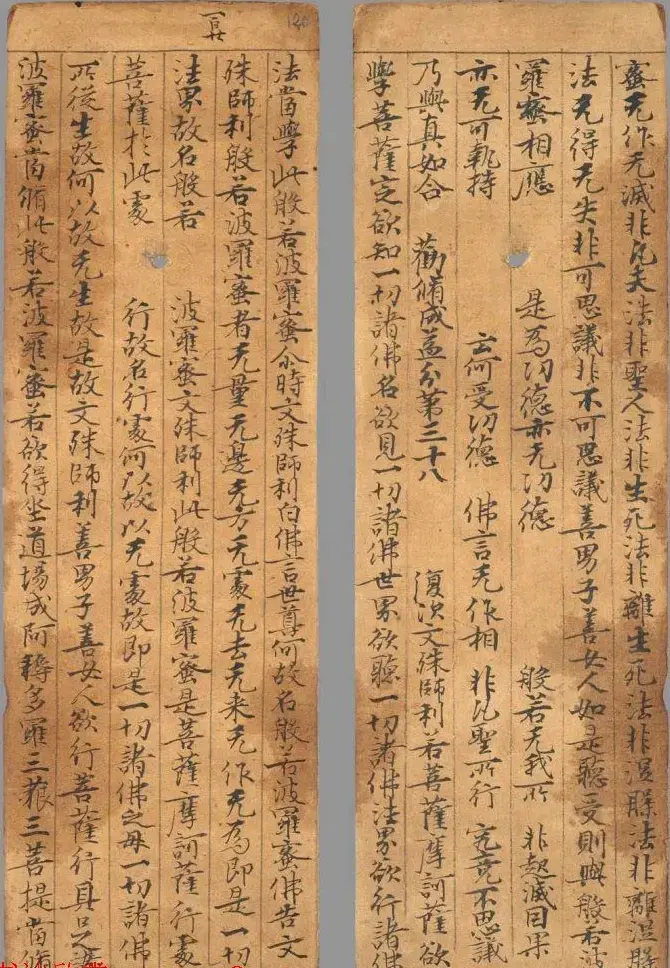 蜜无作无滅非凡夫法非聖人法非生死法非離生死法非涅槃法非離涅槃
法无得无失非可思議非不可思議善男子善女人如是聽受則與般若波
羅蜜相應 是為功德亦无功德 般若无我所 非起滅因果
亦无可執持 云何受功德 佛言无作相 非凡聖所行 究竟不思議
乃與真如合 勸脩成益分第三十八 復次文殊師利若菩薩摩訶薩欲
學菩薩定欲知一切諸佛名欲見一切諸佛世界欲聽一切諸佛法界欲行諸佛
120
一百廿
法當學此般若波羅蜜尒時文殊師利白佛言世尊何故名般若波羅蜜佛告文
殊師利般若波羅蜜者无量无邊无方无處无去无来无作无為即是一切
法界故名般若 波羅蜜文殊師利此般若波羅蜜是菩薩摩訶薩行處
菩薩於此處 行故名行處何以故以无處故即是一切諸佛之母一切諸佛
所從生故何以故无生故是故文殊師利善男子善女人欲行菩薩行具足諸
波羅蜜當脩此般若波羅蜜若欲得坐道場成阿耨多羅三藐三菩提當脩